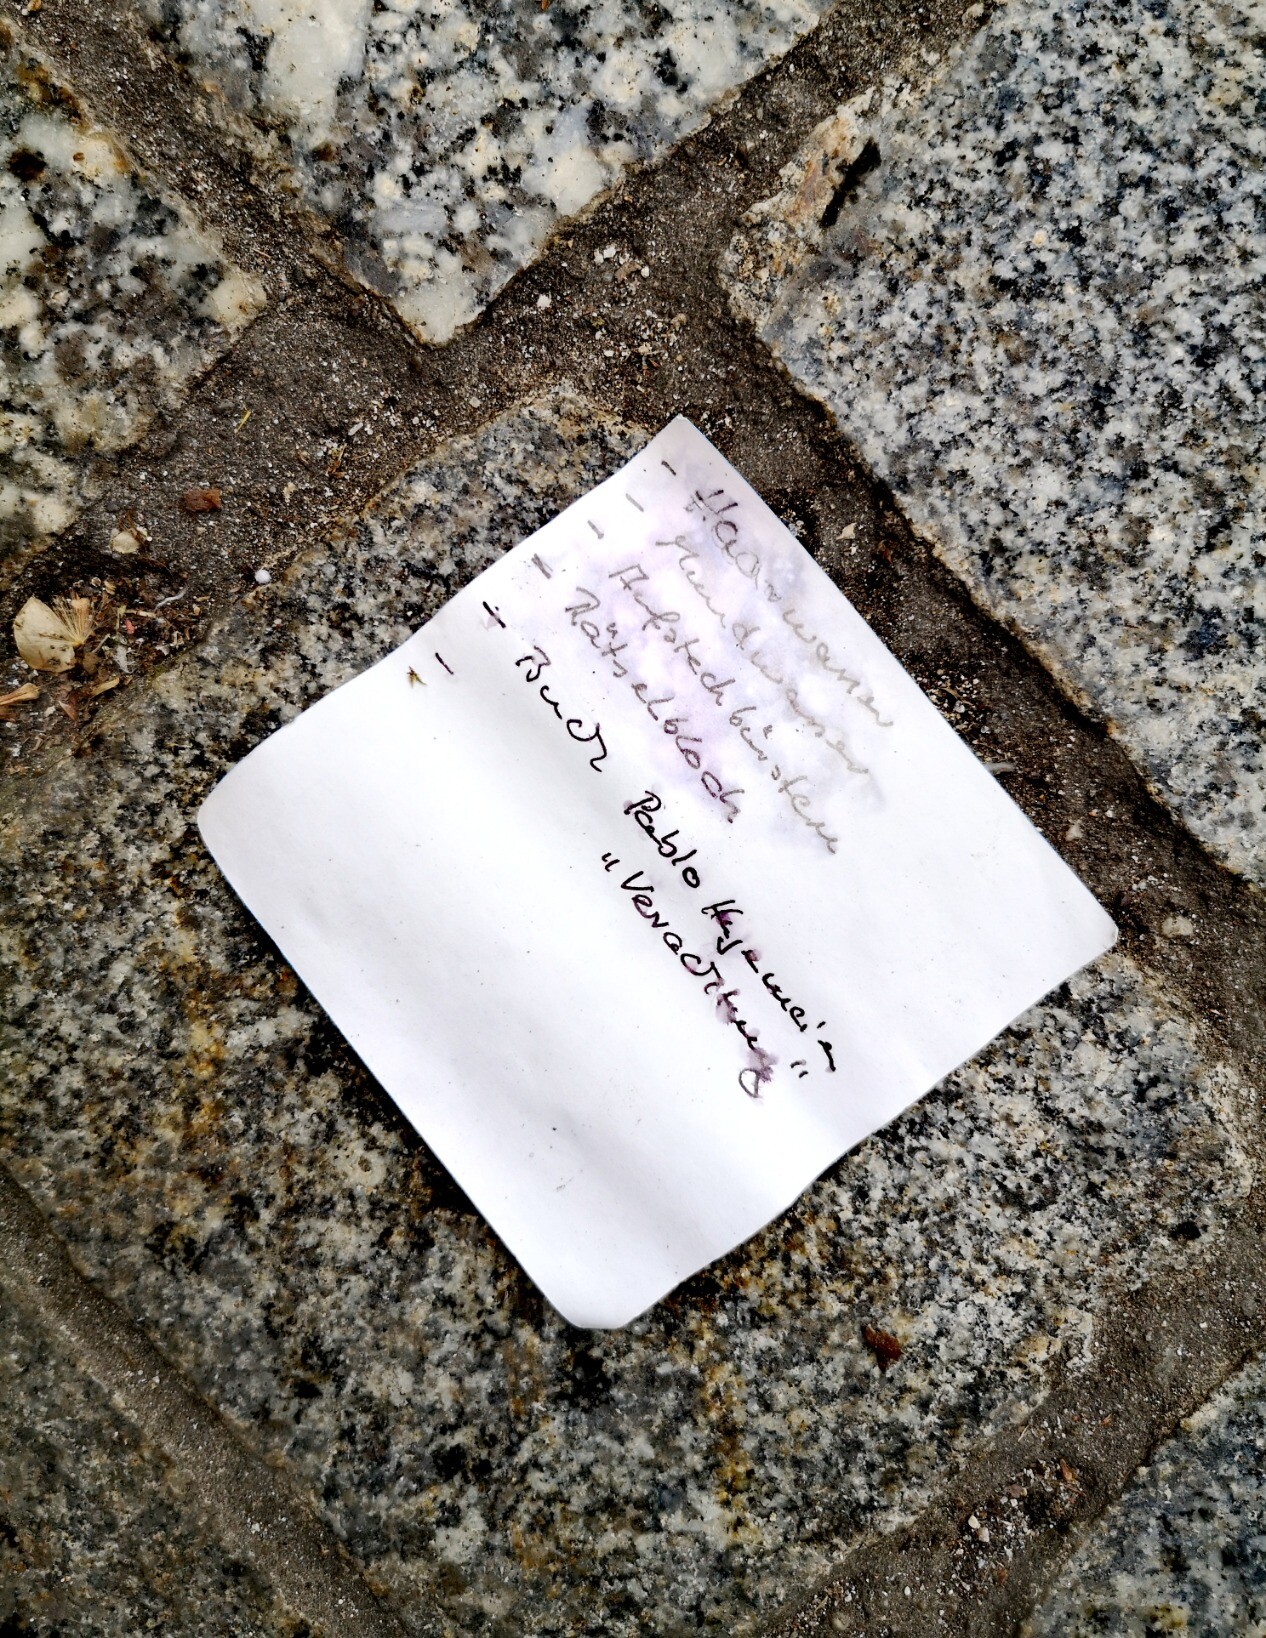 - Haarwasser
- Mundwasser
- Aufsteckbürsten
- Rätselbloch
- Buch Pablo
"Vernichtung"
-